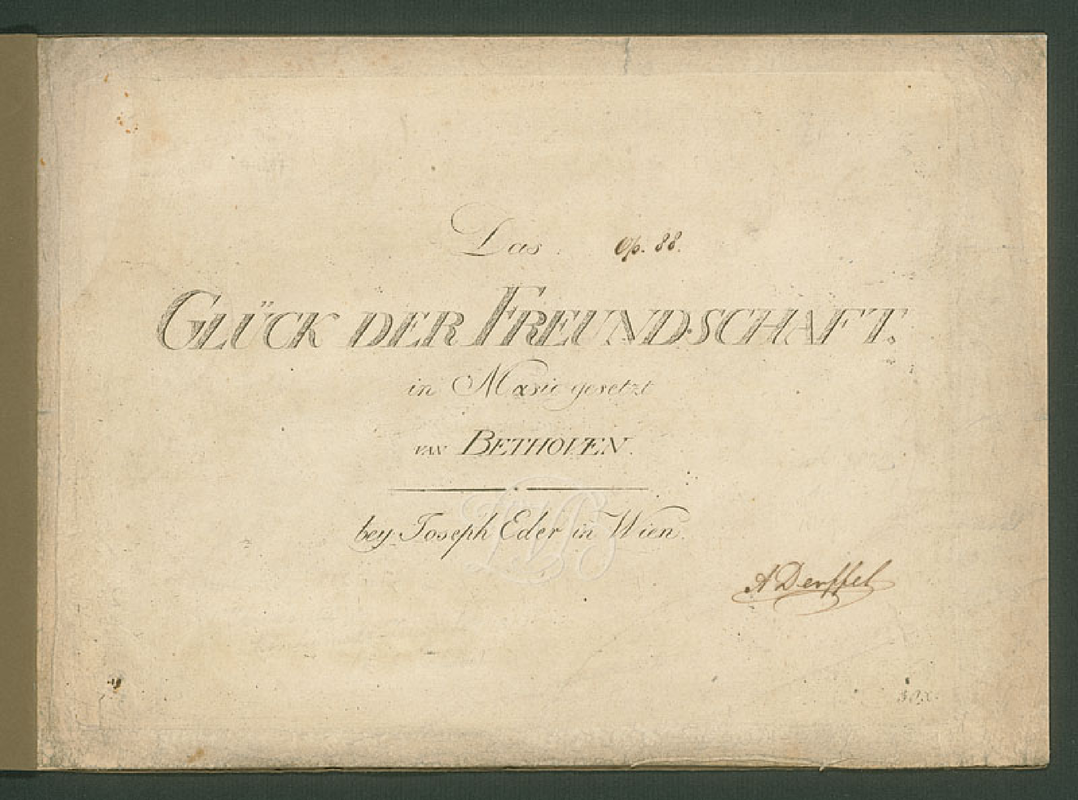 Das. Op. 88.
GLÜCK DER FREUNDSCHAFT.
in Music gesetzt
VAN BETHOVEN.
bey Joseph Eder in Wien.
A Derffel
30x.